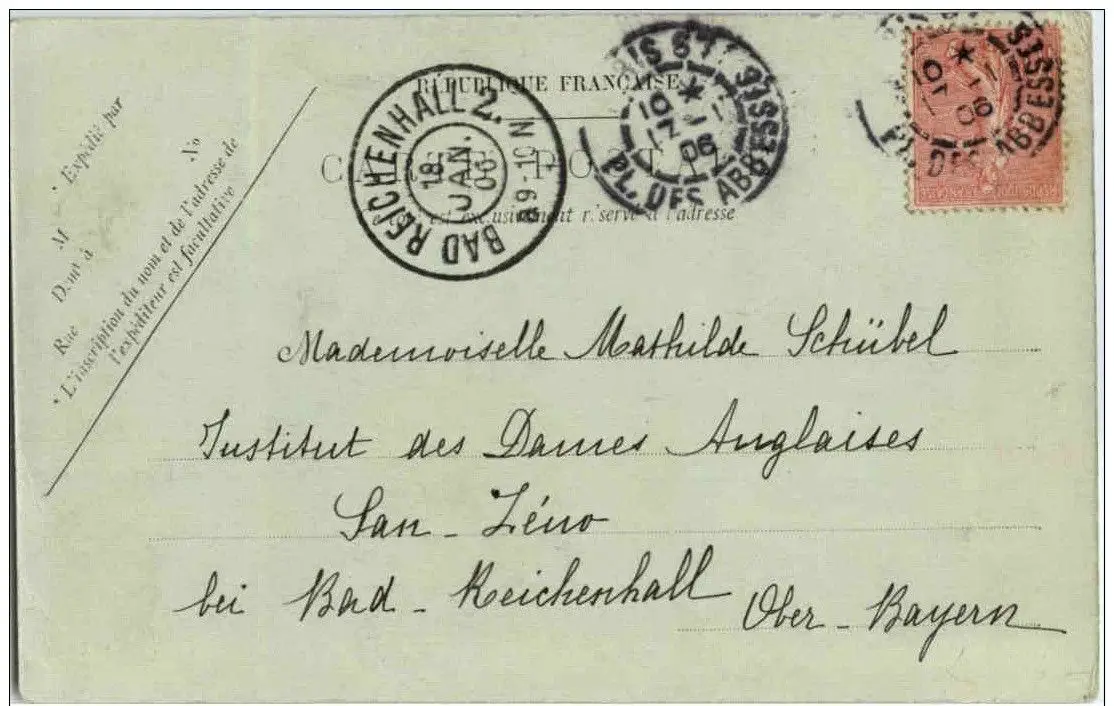 RÉPUBLIQUE FRANÇAISE
CARTE POSTALE
est exclusivement réservé à l'adresse
* Expédié par
M No
Demt à
Rue
* L'inscription du nom et de l'adresse de
l'expéditeur est facultative
BAD REICHENHALL 2.
18
JAN.
06
N 9-10
PL. DES ABBESSES
10
17 1
06
PL. DES ABBESSES
10
17 1
06
Mademoiselle Mathilde Schübel
Institut des Dames Anglaises
San-Zéno
bei Bad-Reichenhall Ober-Bayern